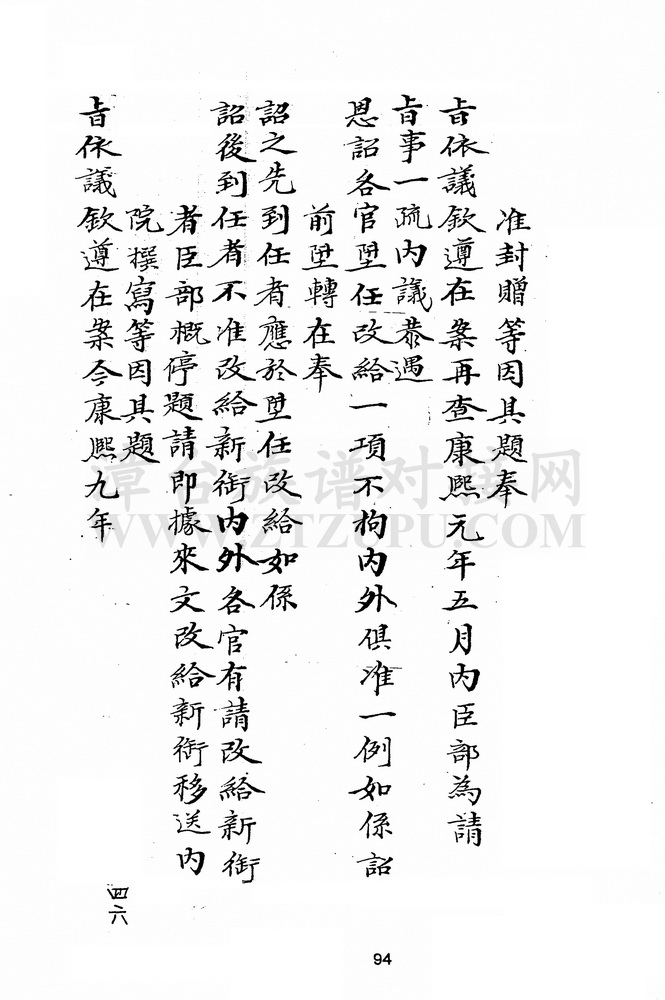 准封贈等因具題奉
旨依議欽遵在案再查康熙元年五月内臣部為請
旨事一疏内議恭遇
恩詔各官陞任改給一項不拘内外俱准一例如係詔
前陞轉在奉
詔之先到任者應於陞任改給如係
詔後到任者不准改給新銜内外各官有請改給新銜
者臣部概停題請即據來文改給新銜移送内
院撰寫等因具題
旨依議欽遵在案今康熙九年
四六
94
漳台族谱对接网
WWW.ZTZUPU.COM